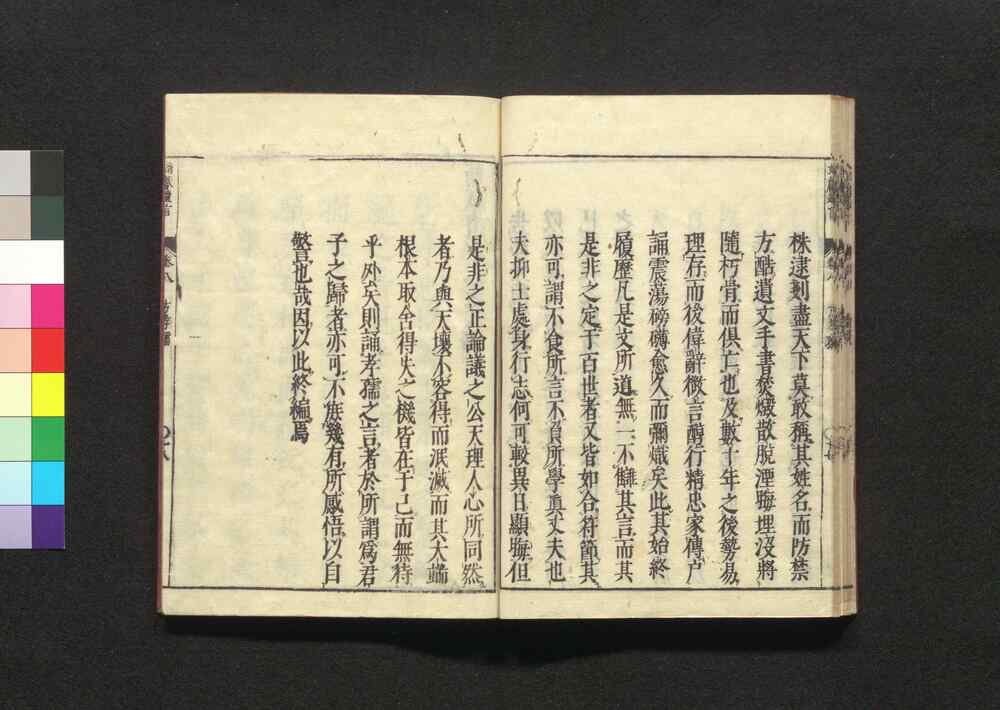 株逮剗盡天下莫敢稱其姓名而防禁
方酷遺文手書焚燬散脫湮晦埋沒將
隨朽骨而俱亡也及數十年之後勢易
理存而後偉辭微言醇行精忠家傳户
誦震蕩磅礴愈久而彌熾矣此其始終
履歷凡是文所道無一不讎其言而其
是非之定于百世者又皆如合符節其
亦可謂不食所言不負所學眞丈夫也
夫抑士處身行志何可較異日顯晦但
是非之正論議之公天理人心所同然
者乃與天壤不容得而泯滅而其大端
根本取舍得失之機皆在于己而無待
乎外矣則誦孝孺之言者於所謂爲君
子之歸者亦可不庶幾有所感悟以自
警也哉因以此終編焉
卷八
方孝孺